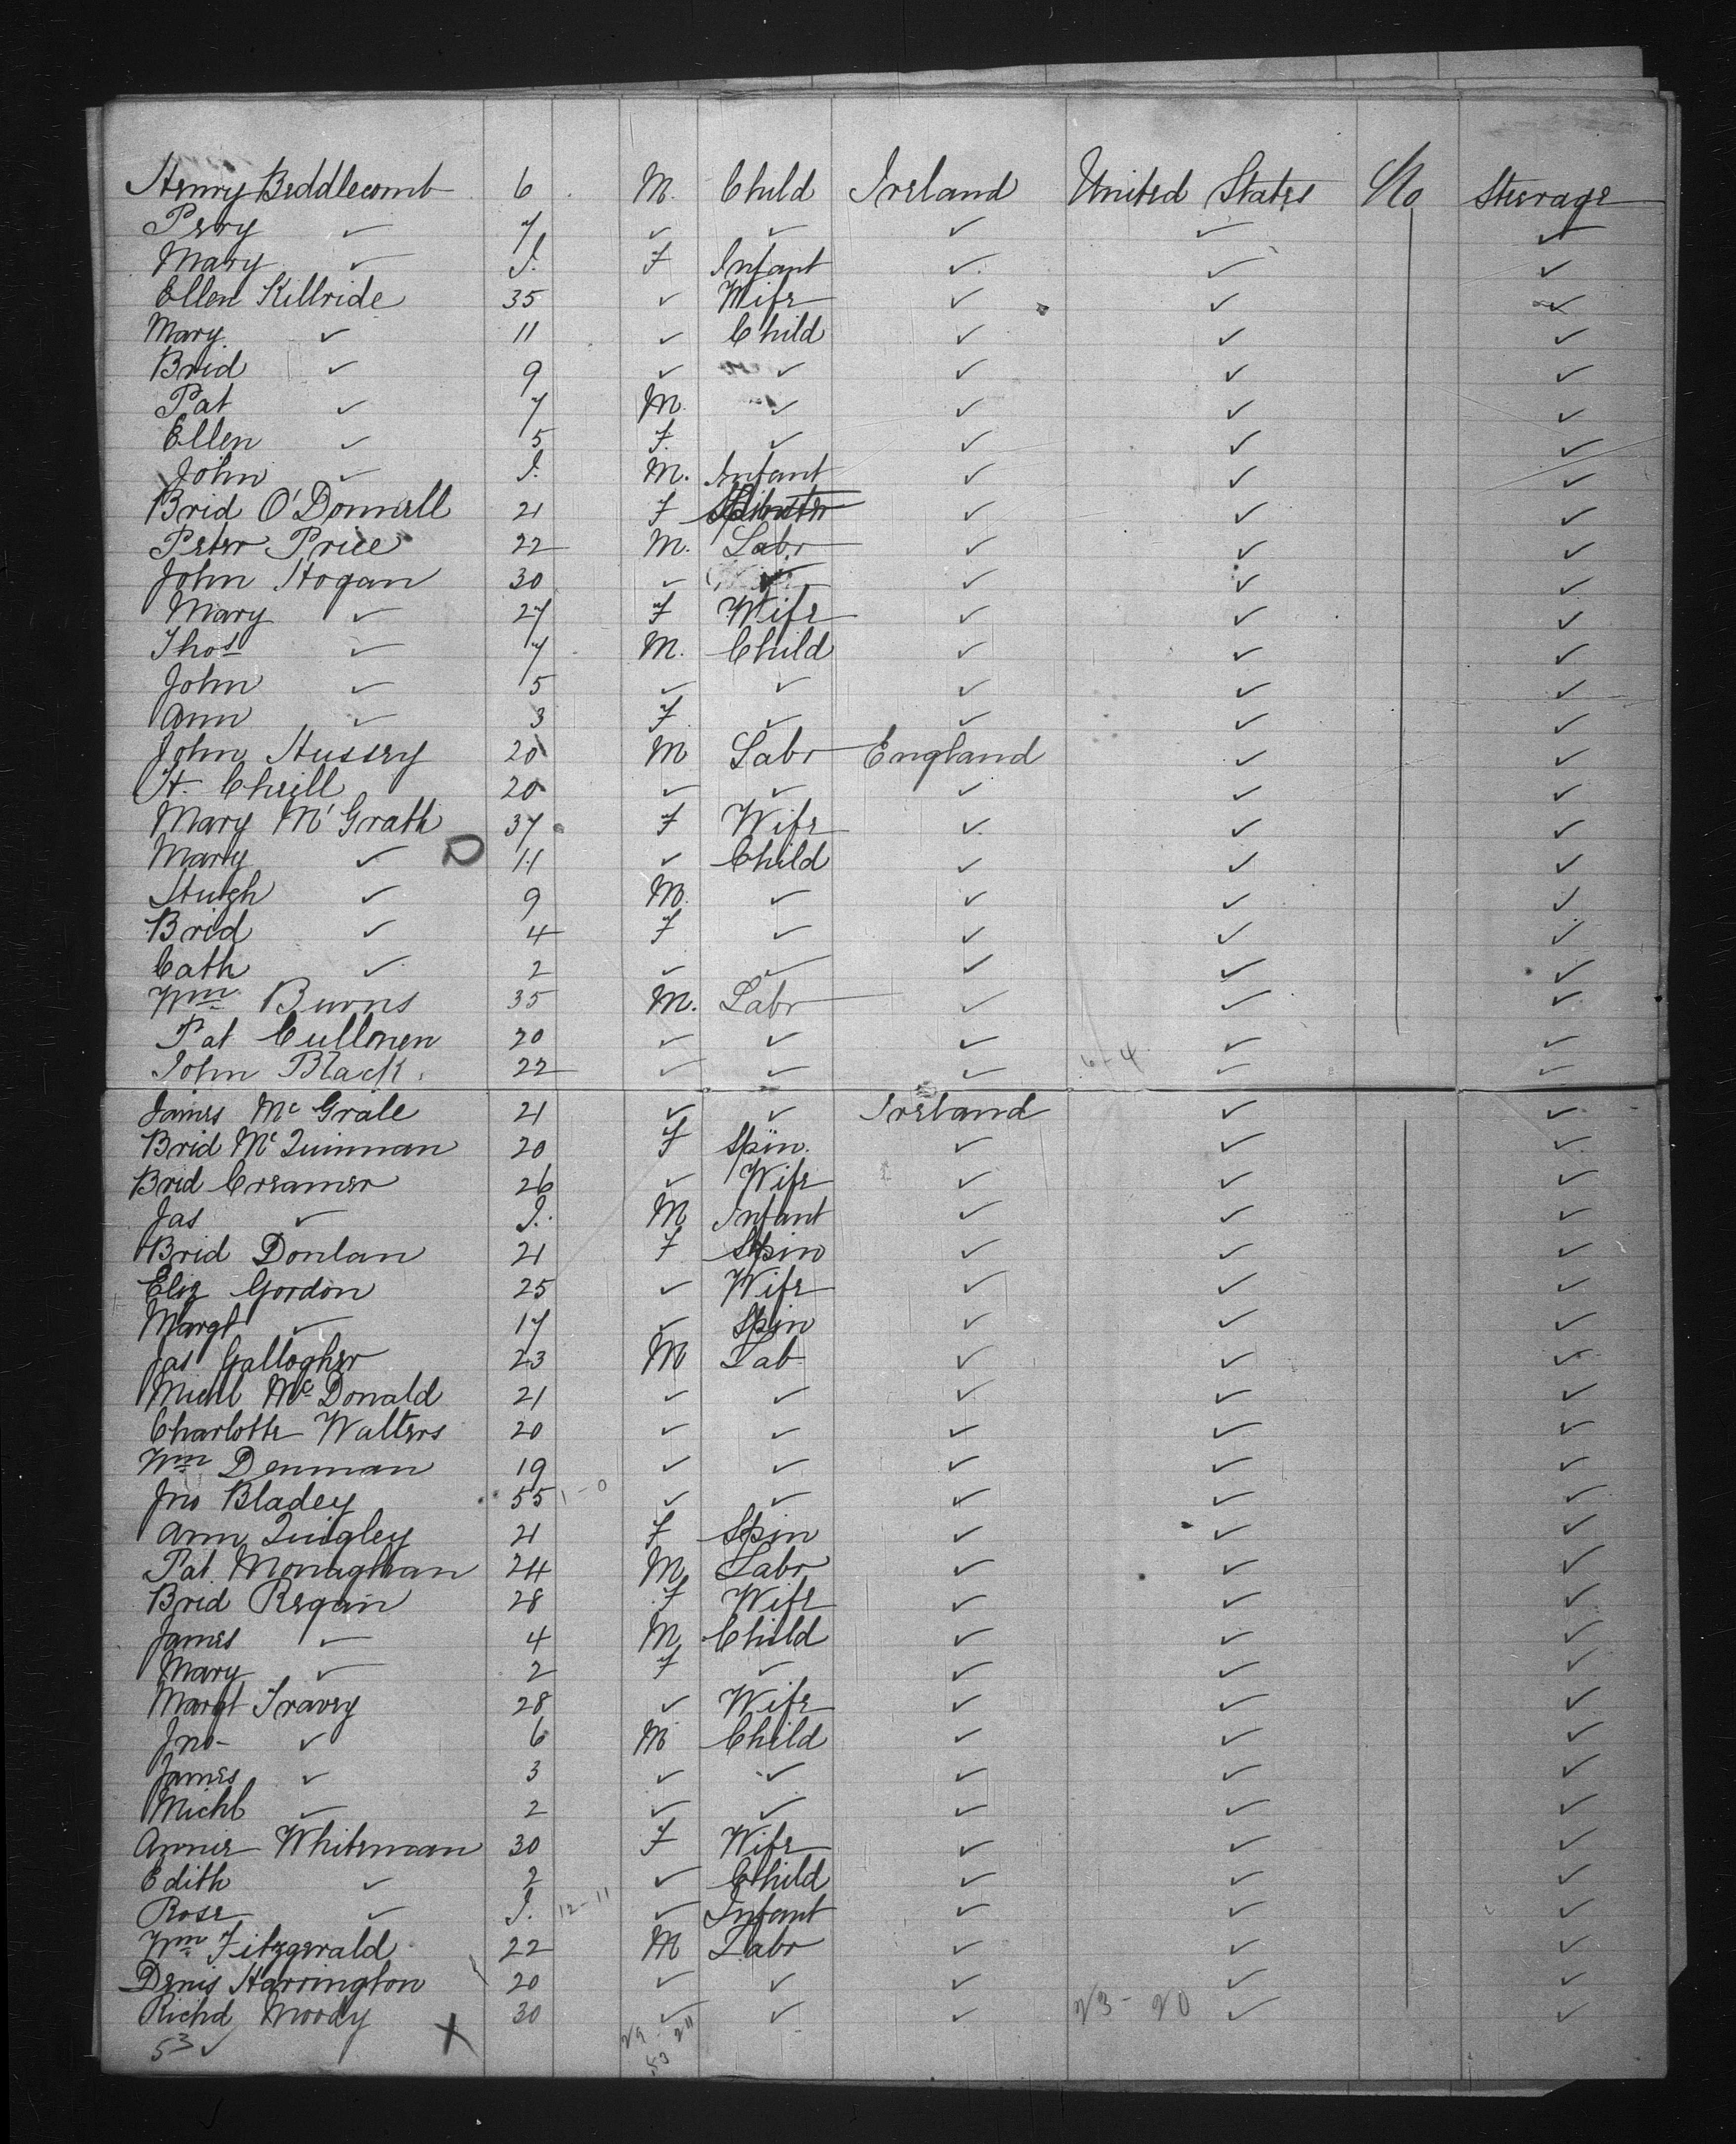 Henry Biddlecomb 6 M. Child Ireland United States No Steerage
Percy ✓ 7 ✓ ✓ ✓ ✓ ✓
Mary ✓ I. F Infant ✓ ✓ ✓
Ellen Killride 35 ✓ Wife ✓ ✓ ✓
Mary ✓ 11 ✓ Child ✓ ✓ ✓
Brid ✓ 9 ✓ ✓ ✓ ✓ ✓
Pat ✓ 7 M. ✓ ✓ ✓ ✓
Ellen ✓ 5 F. ✓ ✓ ✓ ✓
John ✓ I. M. Infant ✓ ✓ ✓
Brid O'Donnell 21 F Spinster ✓ ✓ ✓
Peter Price 22 M. Labr ✓ ✓ ✓
John Hogan 30 ✓ ✓ ✓ ✓ ✓
Mary ✓ 27 F Wife ✓ ✓ ✓
Thos ✓ 7 M. Child ✓ ✓ ✓
John ✓ 5 ✓ ✓ ✓ ✓ ✓
Ann ✓ 3 F ✓ ✓ ✓ ✓
John Hussey 20 M Labr England ✓ ✓
H. Chrill 20 ✓ ✓ ✓ ✓ ✓
Mary M'Grath 37 F Wife ✓ ✓ ✓
Mary ✓ D 11 ✓ Child ✓ ✓ ✓
Hugh ✓ 9 M. ✓ ✓ ✓ ✓
Brid ✓ 4 F ✓ ✓ ✓ ✓
Cath ✓ 2 ✓ ✓ ✓ ✓ ✓
Wm Burns 35 M. Labr ✓ ✓ ✓
Pat Cullonen 20 ✓ ✓ ✓ ✓ ✓
John Black. 22 ✓ ✓ ✓ 6-4 ✓ ✓
James McGrale 21 ✓ ✓ Ireland ✓ ✓
Brid McQuinman 20 F Spin. ✓ ✓ ✓
Brid Creamer 26 ✓ Wife ✓ ✓ ✓
Jas ✓ I. M Infant ✓ ✓ ✓
Brid Donlan 21 F Spin ✓ ✓ ✓
Eliz Gordon 25 ✓ Wife ✓ ✓ ✓
Margt ✓ 17 ✓ Spin ✓ ✓ ✓
Jas Gallogher 23 M Lab ✓ ✓ ✓
Michl McDonald 21 ✓ ✓ ✓ ✓ ✓
Charlotte Walters 20 ✓ ✓ ✓ ✓ ✓
Wm Denman 19 ✓ ✓ ✓ ✓ ✓
Jno Bladey 55 1-0 ✓ ✓ ✓ ✓ ✓
Ann Quigley 21 F Spin ✓ ✓ ✓
Pat Monaghan 24 M Labr ✓ ✓ ✓
Brid Regan 28 F Wife ✓ ✓ ✓
James ✓ 4 M Child ✓ ✓ ✓
Mary ✓ 2 F ✓ ✓ ✓ ✓
Margt Travey 28 ✓ Wife ✓ ✓ ✓
Jno- ✓ 6 M Child ✓ ✓ ✓
James ✓ 3 ✓ ✓ ✓ ✓ ✓
Michl ✓ 2 ✓ ✓ ✓ ✓ ✓
Annie Whiteman 30 F Wife ✓ ✓ ✓
Edith ✓ 2 ✓ Child ✓ ✓ ✓
Rose ✓ I. 12-11 ✓ Infant ✓ ✓ ✓
Wm Fitzgerald 22 M Labr ✓ ✓ ✓
Denis Harrington 20 ✓ ✓ ✓ ✓ ✓
Richd Moody X 30 ✓ ✓ ✓ 23-20 ✓ ✓
53 ✓ 29-
53